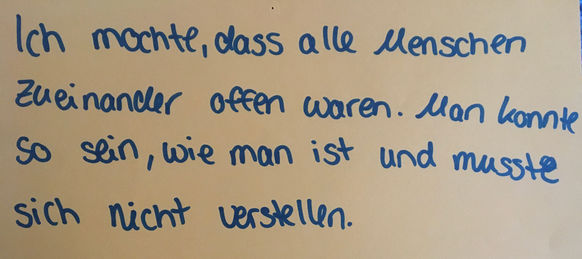 Ich mochte, dass alle Menschen
zueinander offen waren. Man konnte
so sein, wie man ist und musste
sich nicht verstellen.